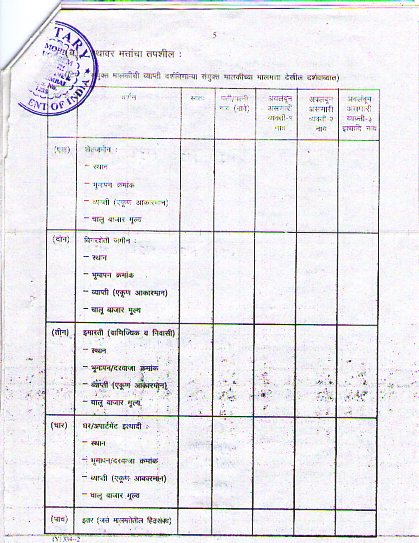 5
स्थावर मत्तांचा तपशील :
संयुक्त मालकीची व्याप्ती दर्शविणाऱ्या संयुक्त मालकीच्या मालमत्ता देखील दर्शवाव्यात)
TARY
ENT OF INDIA
वर्णन
स्वतः
पती/पत्नी
नाव (नावे)
अवलंबून
असणारी
व्यक्ती-१
नाव
अवलंबून
असणारी
व्यक्ती-२
नाव
अवलंबून
असणारी
व्यक्ती-३
इत्यादि नाव
(एक)
शेतजमीन :
– स्थान
– भूमापन क्रमांक
– व्याप्ती (एकूण आकारमान)
– चालू बाजार मूल्य
(दोन)
बिगरशेती जमीन :
– स्थान
– भूमापन क्रमांक
– व्याप्ती (एकूण आकारमान)
– चालू बाजार मूल्य
(तीन)
इमारती (वाणिज्यिक व निवासी)
– स्थान
– भूमापन/दरवाजा क्रमांक
– व्याप्ती (एकूण आकारमान)
– चालू बाजार मूल्य
(चार)
घर/अपार्टमेंट इत्यादी :
– स्थान
– भूमापन/दरवाजा क्रमांक
– व्याप्ती (एकूण आकारमान)
– चालू बाजार मूल्य
(पाच)
इतर (जसे मालमत्तेतील हितसंबंध)